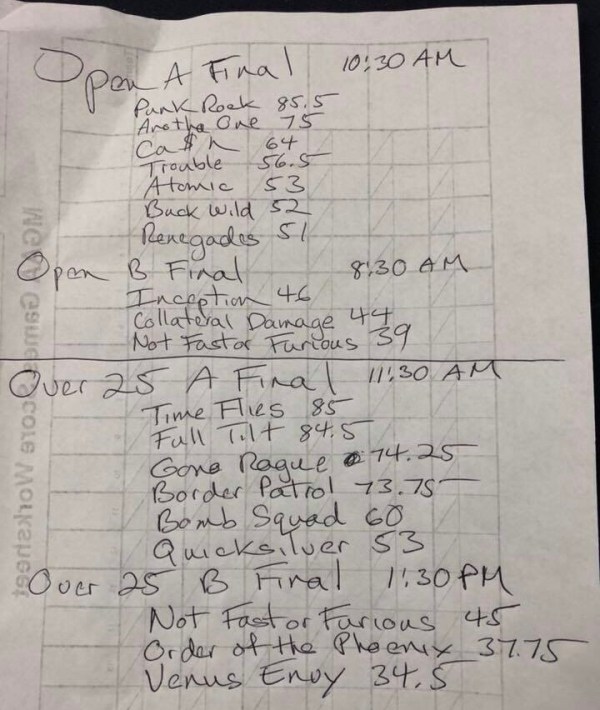 Open A Final 10:30 AM
Punk Rock 85.5
Anotha One 75
Ca$h 64
Trouble 56.5
Atomic 53
Buck Wild 52
Renegades 51
Open B Final 8:30 AM
Inception 46
Collateral Damage 44
Not Fast or Furious 39
Over 25 A Final 11:30 AM
Time Flies 85
Full Tilt 84.5
Gone Rogue 74.25
Border Patrol 73.75
Bomb Squad 60
Quicksilver 53
Over 25 B Final 1:30 PM
Not Fast or Furious 45
Order of the Phoenix 37.75
Venus Envy 34.5
Score Worksheet